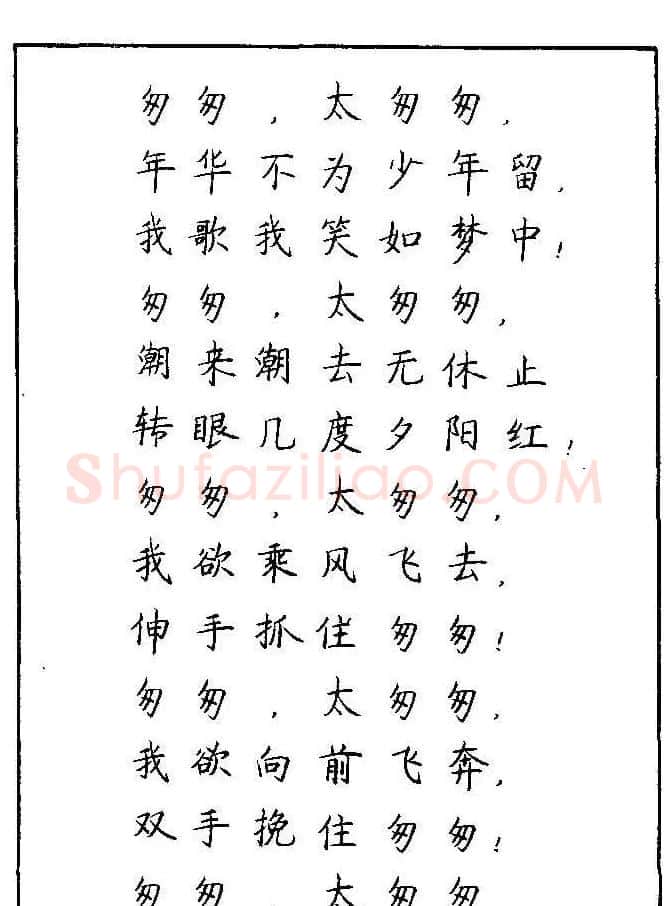 匆匆，太匆匆，
年华不为少年留，
我歌我笑如梦中！
匆匆，太匆匆，
潮来潮去无休止
转眼几度夕阳红！
ShufaziliaO.COM
匆匆，太匆匆，
我欲乘风飞去，
伸手抓住匆匆！
匆匆，太匆匆，
我欲向前飞奔，
双手挽住匆匆！
匆匆，太匆匆